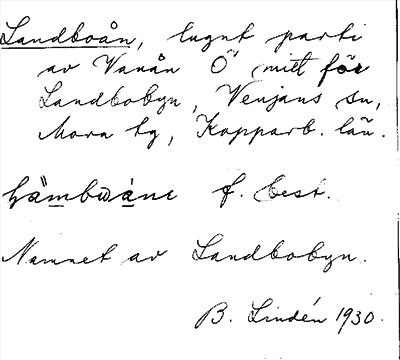 Landboån, lugnt parti
av Vanån Ö mitt för
Landbobyn, Venjans sn,
Mora tg, Kopparb. län.
f. best.
Namnet av Landbobyn.
B. Lindén 1930.